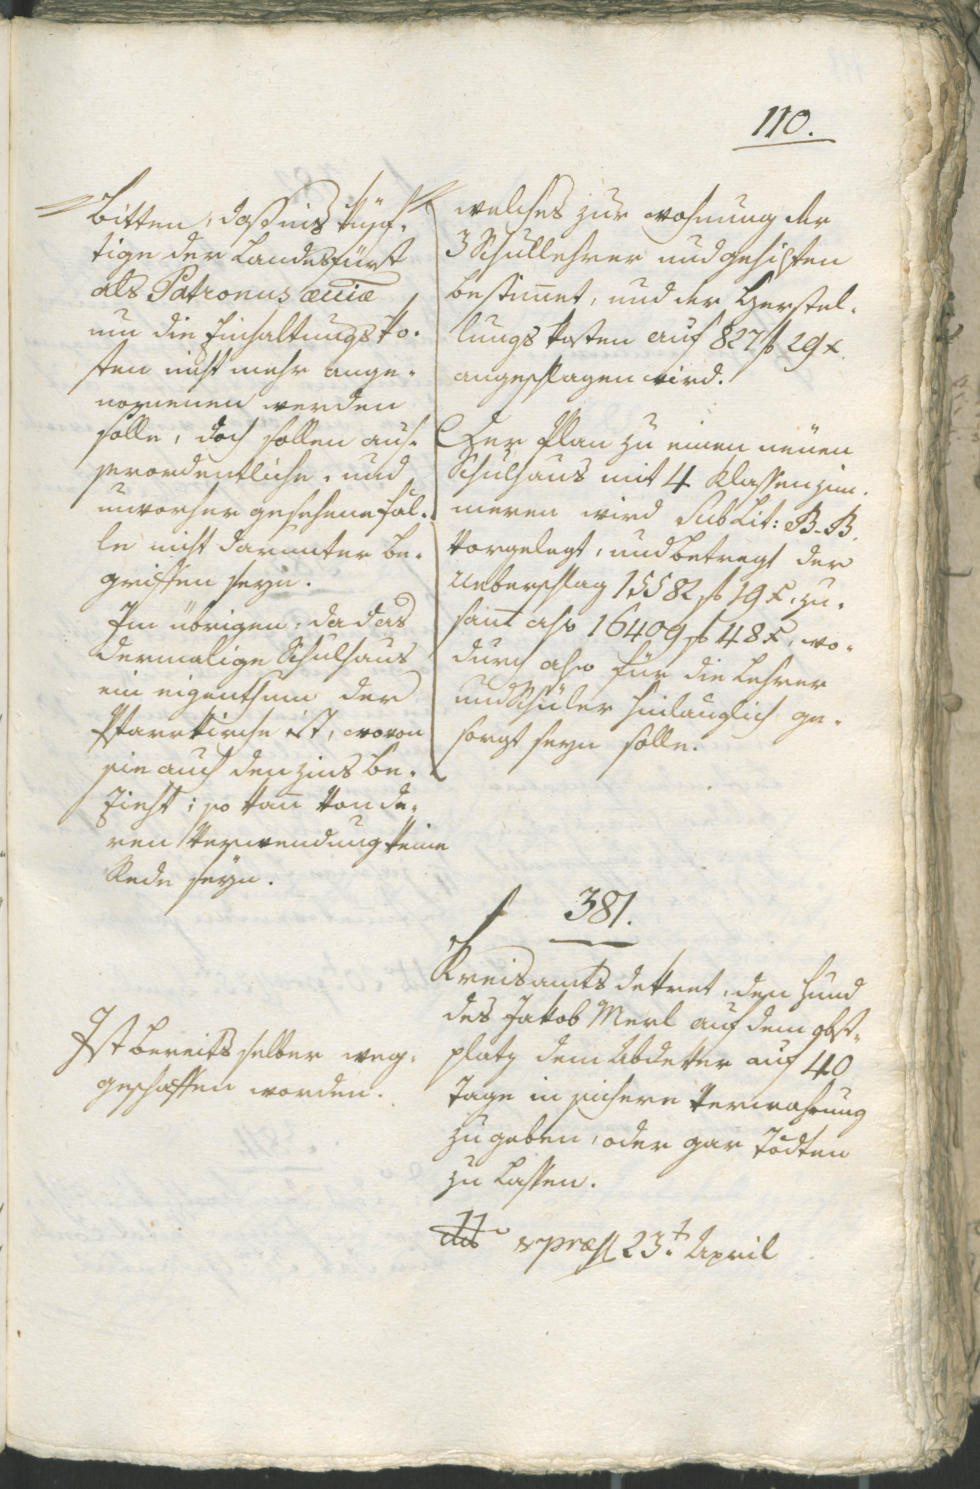 110.
Bitten, daß ins künf-
tige der Landesfürst
als Patronus ecciæ
um die Einhaltungs Ko-
sten nicht mehr ange-
nommenen werden
solle, doch sollen aus-
serordentliche, und
unvorher gesehene Fäl-
le nicht darunter be-
griffen seyn.
Im übrigen, da das
dermalige Schulhaus
ein eigenthum der
Pfarrkirche ist, wovon
sie auch den zins be-
zieht; so kann von de-
ren Verwendung keine
Rede seyn.
welches zur wohnung der
3 Schullehrer und gehilfen
bestimmet, und der Herstel-
lungs kosten auf 827 f 29 x.
angeschlagen wird.
Der Plan zu einen neüen
Schulhaus mit 4 Klassenzim-
meren wird sub Lit: B-B.
vorgelegt, und betragt der
Ueberschlag 15582 f 19 x, zu-
samt also 16409 f 48 x, wo-
durch also für die Lehrer
und Schüler hinlänglich ge-
sorgt seyn solle.
381.
Kreisamts dekret, den Hund
des Jakob Merl auf dem obst-
platz dem Abdeker auf 40
Tage in sichere Verwahrung
zu geben, oder gar Tödten
zu lassen.
præs 23t April
Ist bereits selber weg-
geschaffen worden.